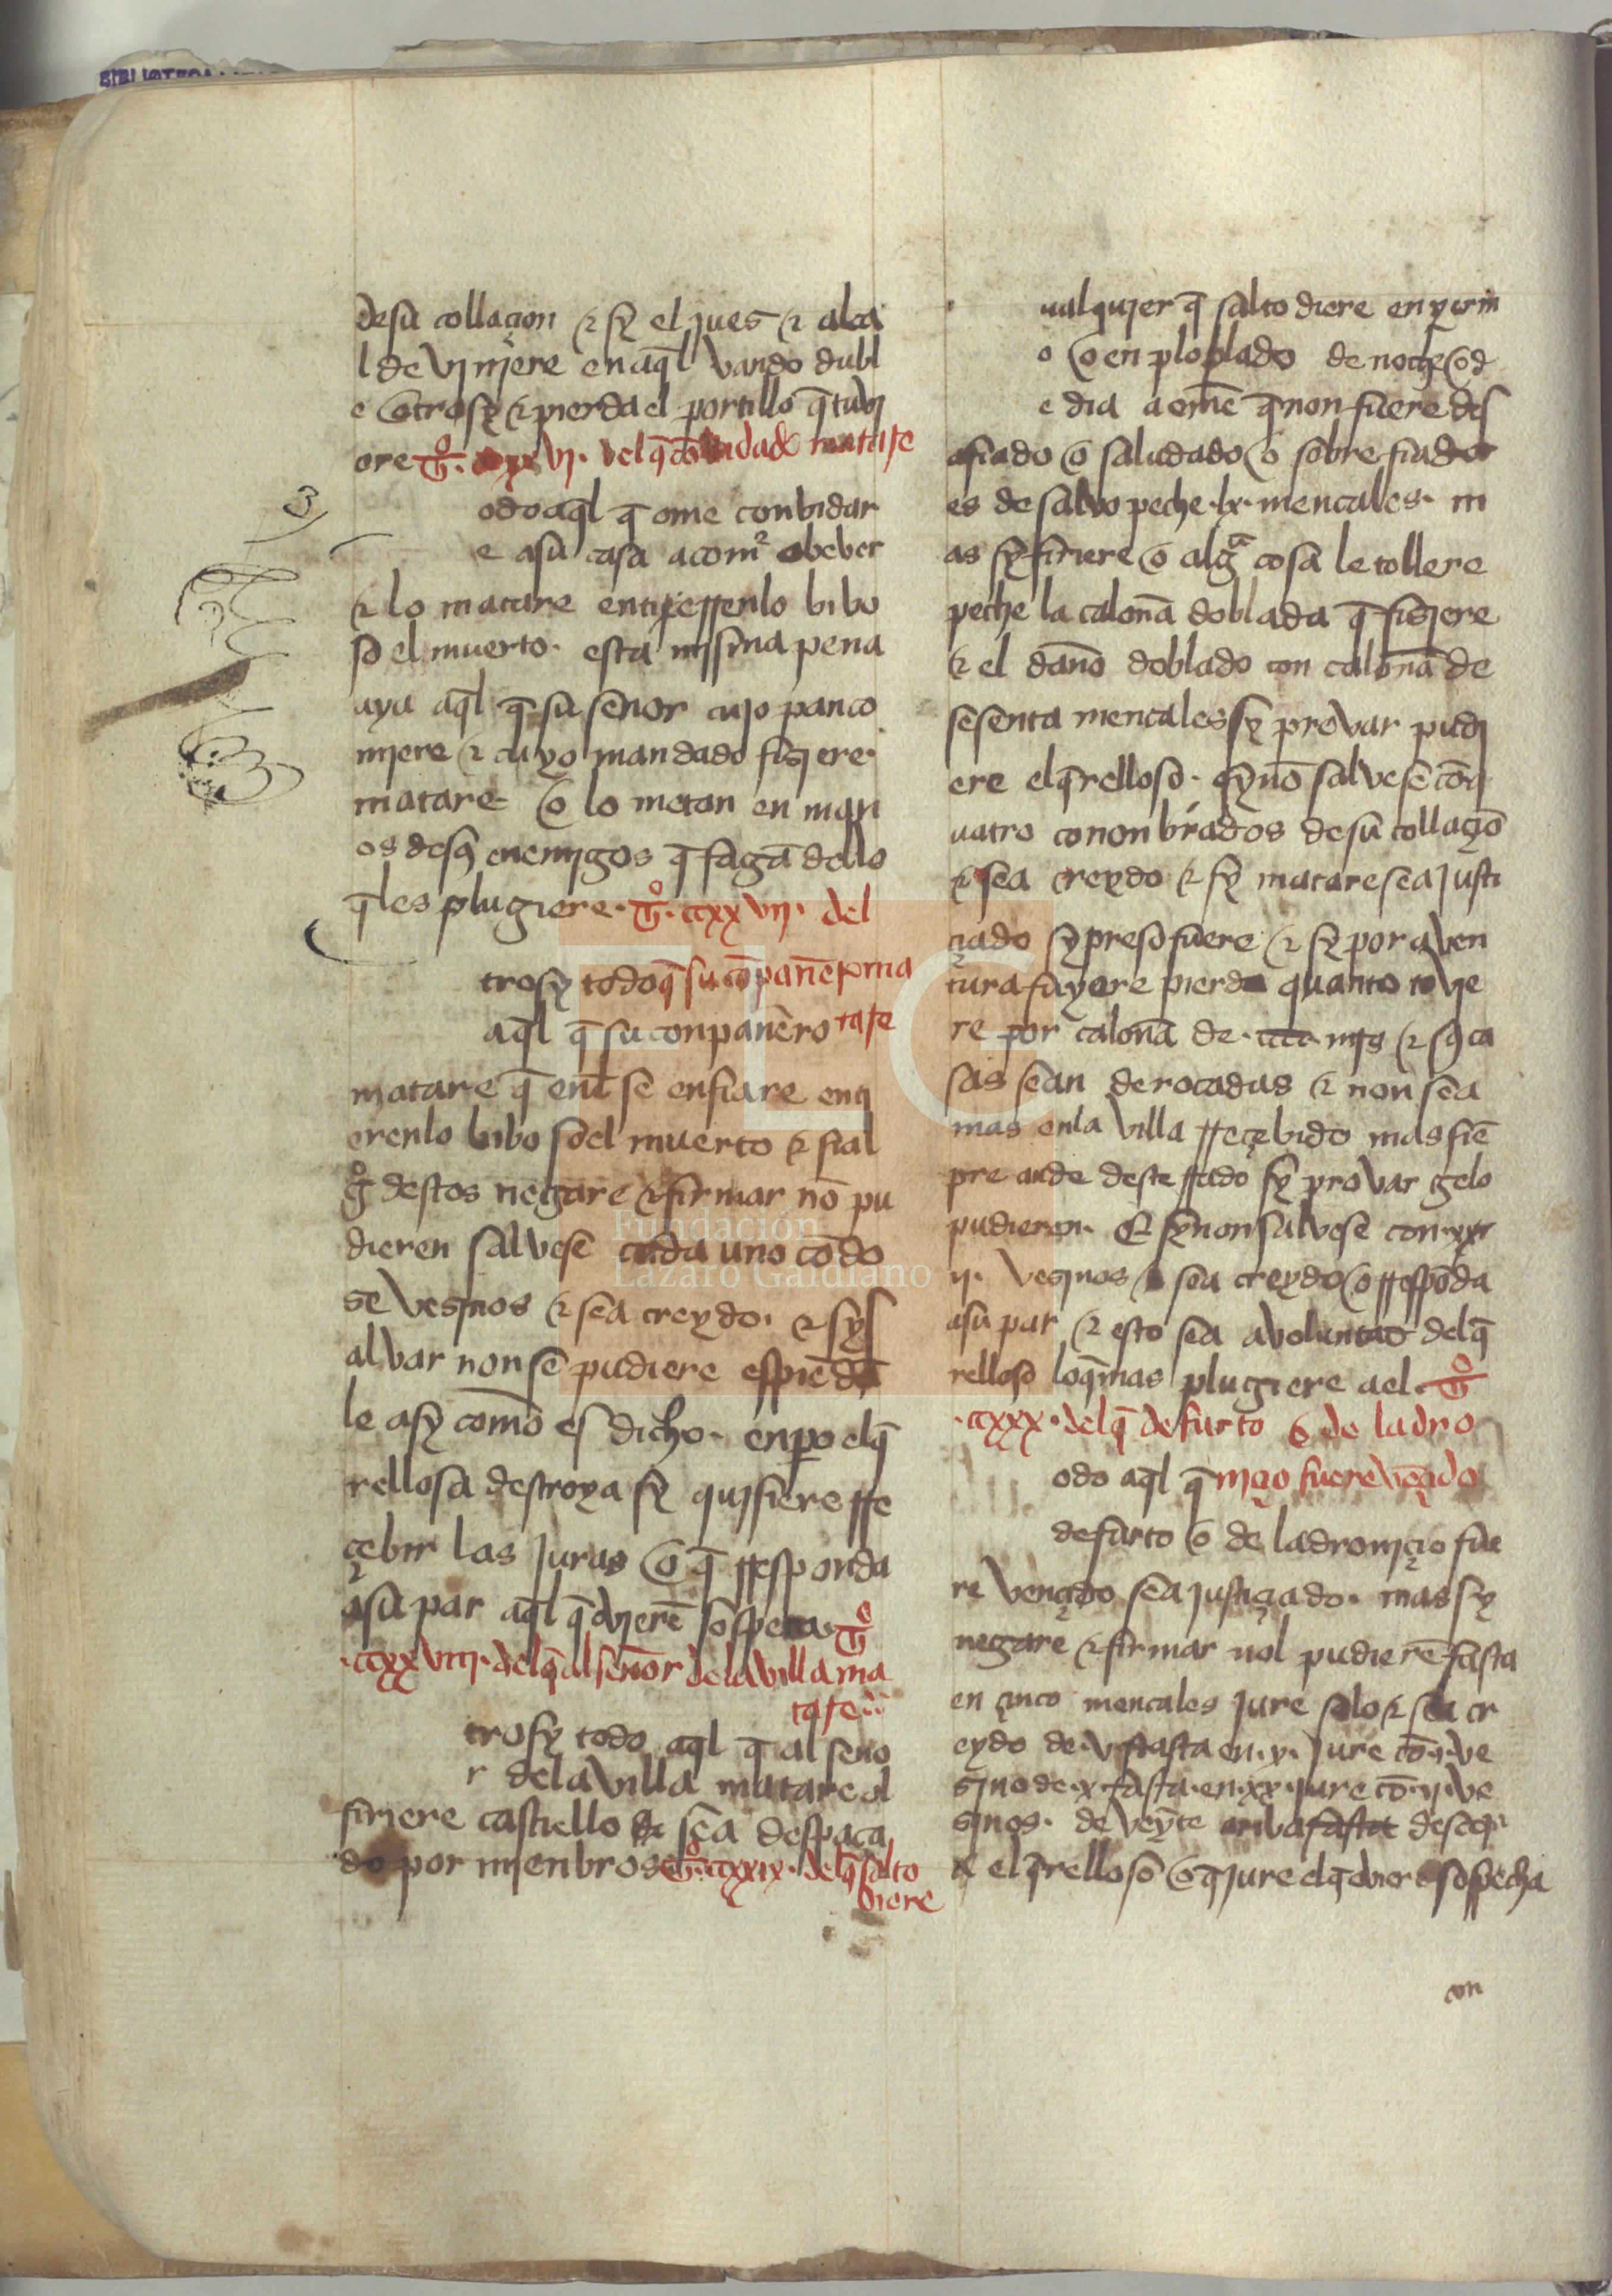 BIBLIOTECA
desu collaçion & sy el jues & alca
l de vinjere en aq̃l vando dubl
e otrosy & pierda el portillo q̃ tuvj
ere tº. vj. del q̃ conbidado matase
odo aq̃l q̃ ome conbidar
e asu casa a comer o beber
& lo matare entierrenlo bibo
so el muerto. esta mjsma pena
aya aq̃l q̃ su señor cujo pan co
mjere & cuyo mandado fisjere.
matare o lo metan en man
os de sꝯ enemjgos q̃ fagã dello
q̃ les plugiere. tº. ccxxvij. del
trosy todo q̃ su cõpañero ma
aq̃l q̃ su conpanero tase
matare q̃ enl se enfiare enti
erenlo bibo so el muerto & si al
gº destos negare & firmar nõ pu
dieren salvese cada uno cõ do
se vesjnos & sea creydo. & sy s
alvar non se pudiere
le asy como es dicho. enpo elq̃
rellosa destroya sy qujsiere rre
çebir las juras o q̃ rresponda
asu par aq̃l q̃ ovjerẽ sospecha. tº
.ccxxviij. del q̃ al señor dela villa ma
tase
trosy todo aq̃l q̃ al seno
r dela villa matare ol
firiere castiello sea despaça
do por mienbros tº. ccxxix. del q̃ salto
diere
ualqujer q̃ salto diere en yerm
o o en poblado de noche o d
e dia a ome q̃ non fuere des
afiado o saludado o sobre fiador
es de salvo peche .lx. mencales. m
as sy firiere o algª cosa le tollere
peche la caloña doblada q̃ fisjere
& el daño doblado con caloña de
sesenta mencales sy provar pudj
ere el q̃relloso. sy nõ salvese cõ q
uatro cononbrados de su collaçiõ
& sea creydo & sy matare sea justi
çiado sy preso fuere & sy por aven
tura fuyere pierda quanto tovje
re por caloña de .cccc. mrs & sꝯ ca
sas sean derocadas & non sea
mas enla villa rreçebido mas siẽ
pre ande desterrado sy provar gelo
pudieron. E sy non salvese con .xx
ij. vesjnos & sea creydo o rrespõda
asu par & esto sea avoluntad delq̃
relloso loq̃ mas plugiere ael. tº
.ccxxx. del q̃ de furto o de ladro
odo aq̃l q̃ nyçio fuere vençido
de furto o de ladronjçio fue
re vençido sea justiçiado. mas sy
negare & firmar nol pudierẽ fasta
en çinco mencales jure solo & sea cr
eydo de .v. fasta en .x. jure cõ .j. ve
sjno de .x. fasta en .xx. jure cõ .ij. ve
sjnos. de veynte arriba fasta
el q̃relloso o q̃ jure elq̃ ovier sospecha
con
Fundación
Lázaro Galdiano